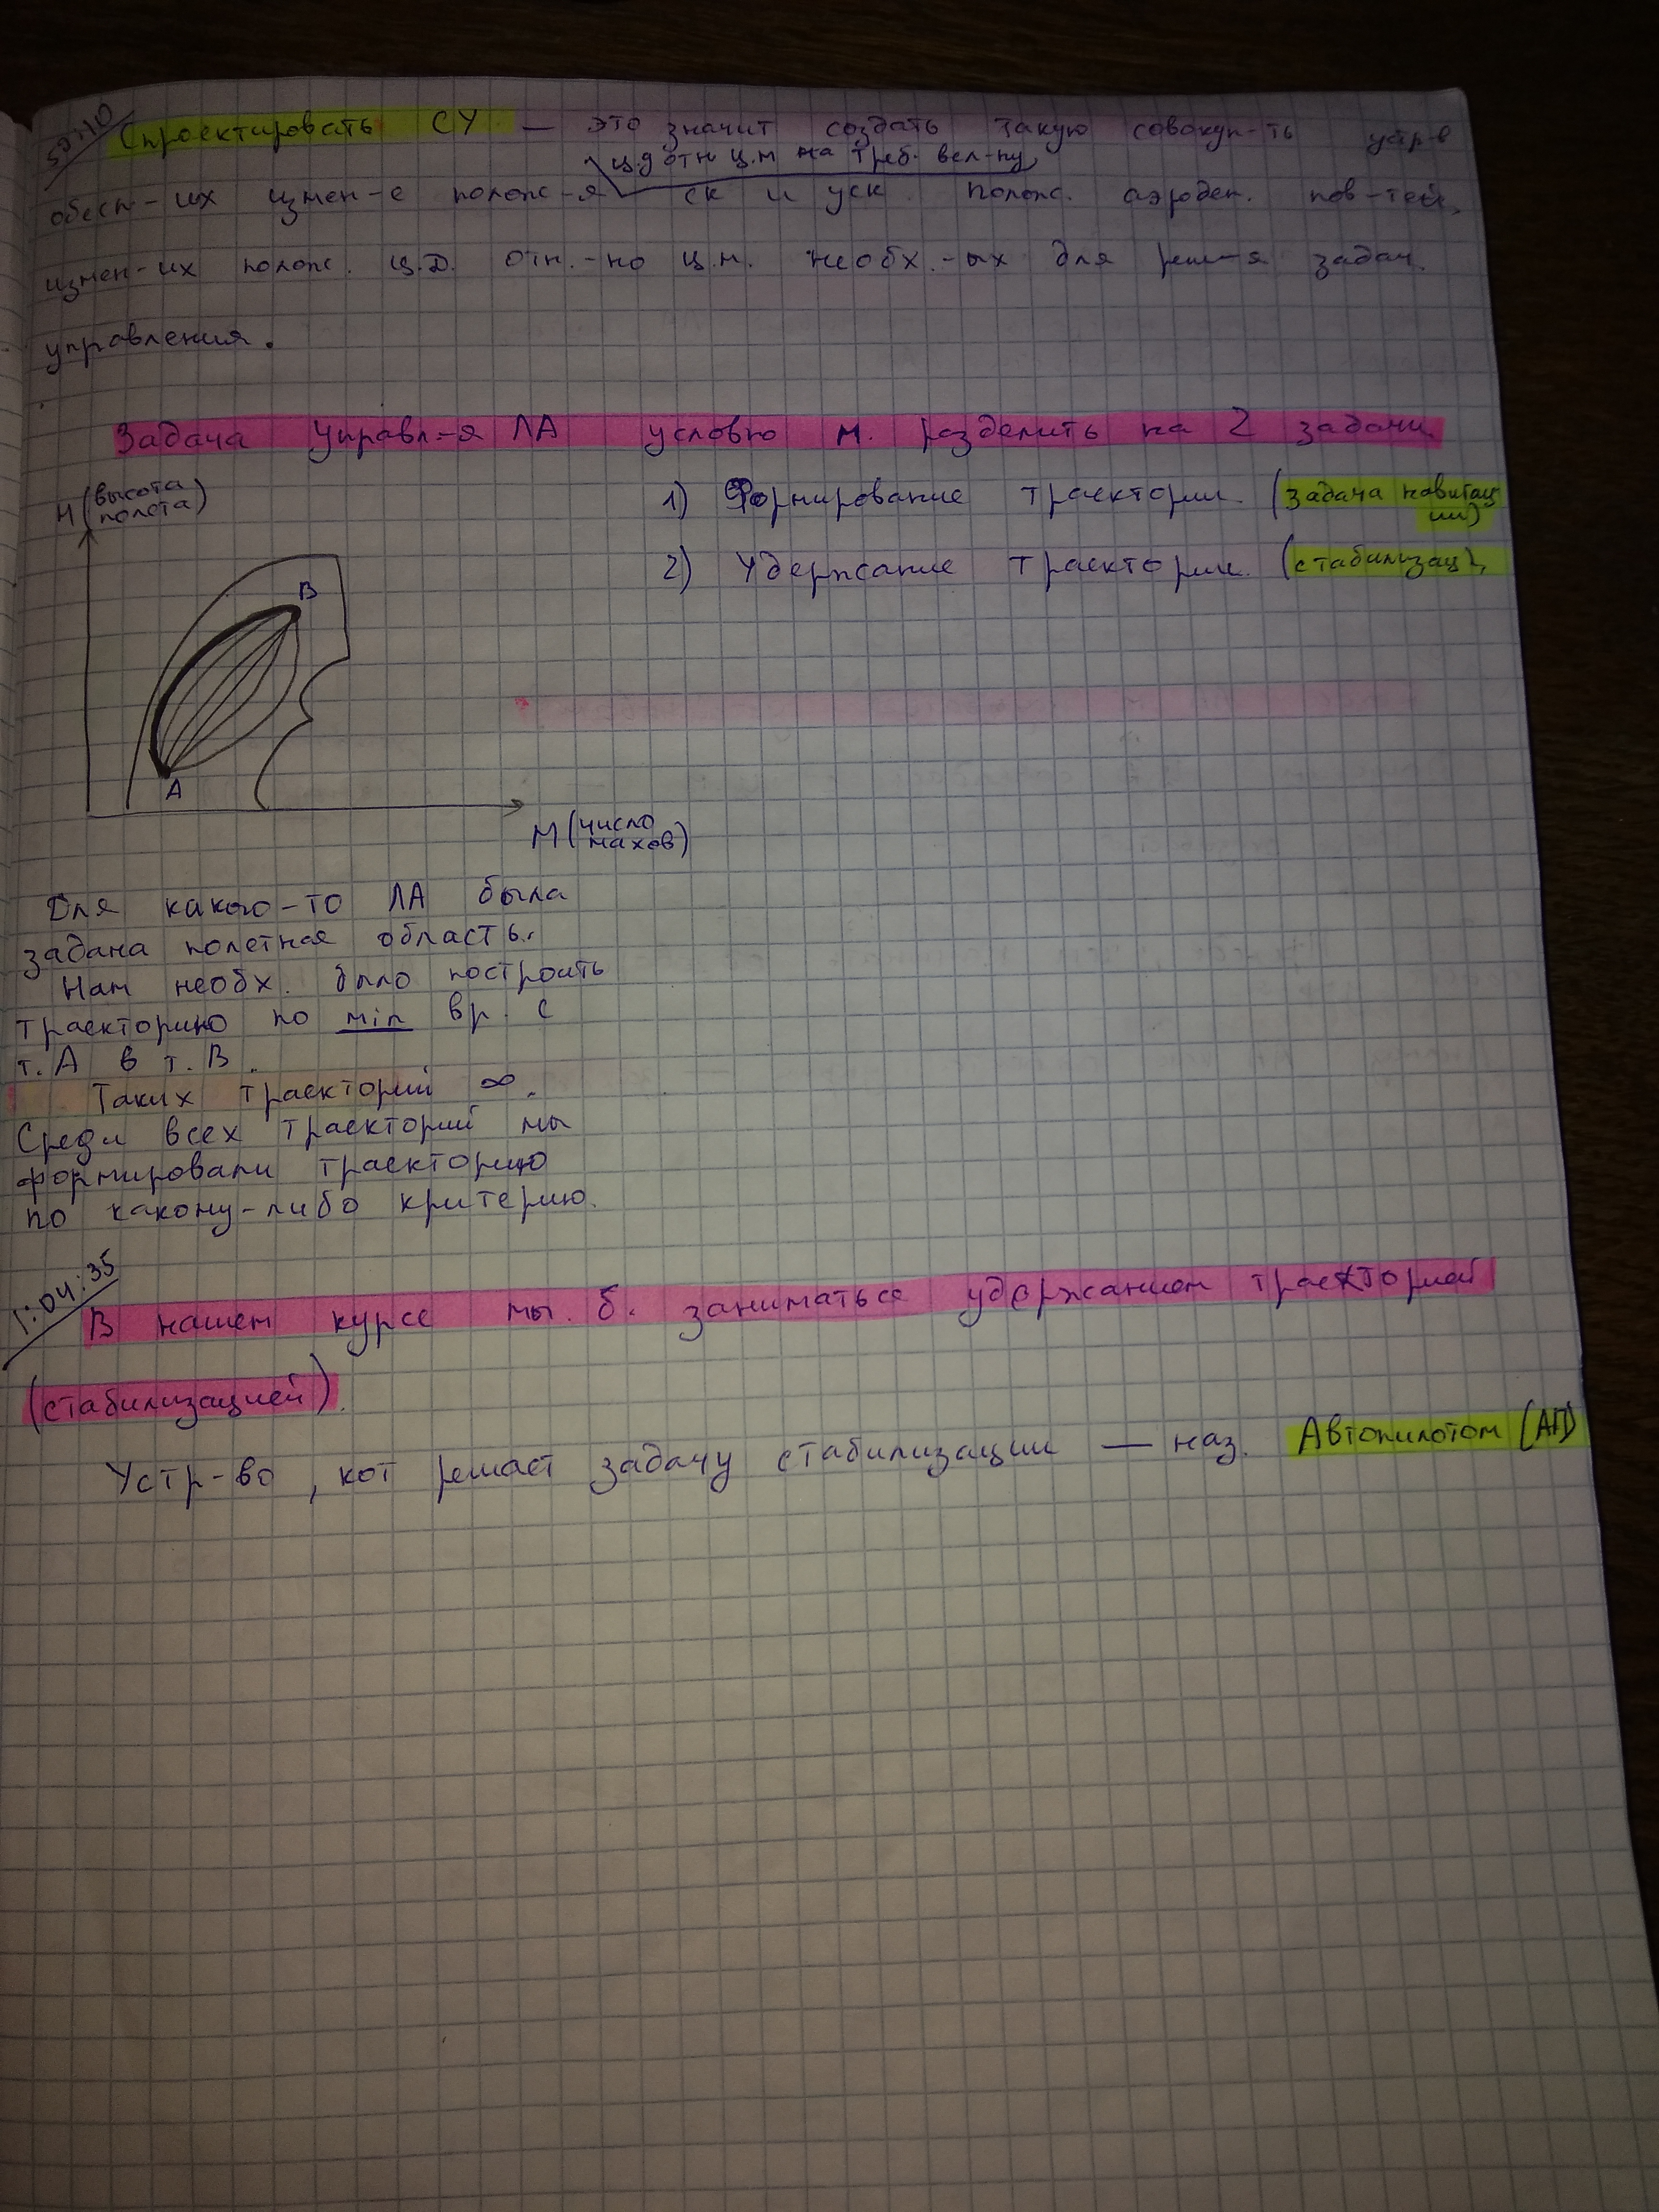 59:10
Спроектировать СУ — это значит создать такую совокуп-ть устр-в
ц.д отн ц.м на треб. вел-ну
обесп-их измен-е полож-я ск и уск полож. аэроден. пов-тей,
измен-их полож. ц.д. отн.-но ц.м. необх.-ых для реш-я задач
управления.
Задача управл-я ЛА условно м. разделить на 2 задачи.
H (высота полета)
1) Формирование траектории. (задача навигац
ии)
2) Удержание траектории. (стабилизац.)
B
A
M (число махов)
Для какого-то ЛА была
задана полетная область.
Нам необх. было построить
траекторию по min вр. с
т. А в т. В.
Таких траекторий ∞.
Среди всех траекторий мы
формировали траекторию
по какому-либо критерию.
1:04:35
В нашем курсе мы б. заниматься удержанием траекторией
(стабилизацией).
Устр-во, кот решает задачу стабилизации — наз. Автопилотом (АП)